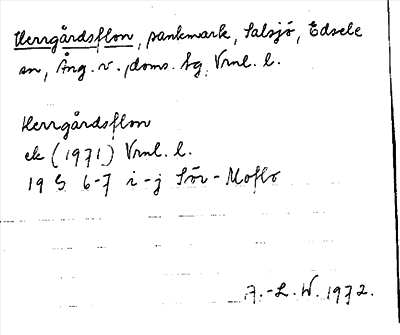 Herrgårdsflon, sankmark, Salsjö, Edsele
sn, Ång. v. doms. tg, Vrnl. l.
Herrgårdsflon
ek (1971) Vrnl. l.
19 G 6-7 i-j Sör-Moflo
A.-L. W. 1972.